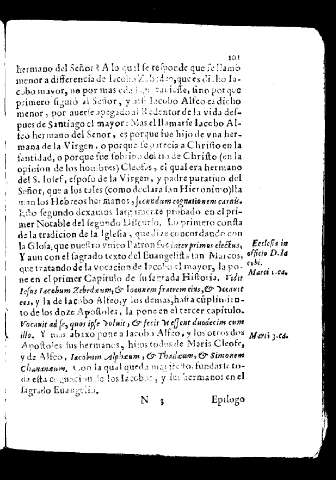 101
hermano del Señor? A lo qual se responde que se llamò
menor a differencia de Iacobo Zebedeo, que es dicho Ia-
cobo mayor, no por mas edad, sino porque
primero siguiò al Señor, y assi Iacobo Alfeo es dicho
menor, por auerse apegado al Redentor de la vida des-
pues de Santiago el mayor: Mas el llamarse Iacobo Al-
feo hermano del Señor, es porque fue hijo de vna her-
mana de la Virgen, o porque se parecia a Christo en la
santidad, o porque fue sobrino de Christo (en la
opinion de los hombres) Cleofas, el qual era hermano
del S. Iosef, esposo de la Virgen, y padre putatiuo del
Señor, que a los tales (como declara san Hieronimo) lla
man los Hebreos hermanos, secundum cognationem carnis.
Lo segundo dexamos largamente probado en el pri-
mer Notable del segundo Discurso. Lo primero consta
de la tradicion de la Iglesia, que dize concordando con
la Glosa, que nuestro vnico Patron fue inter primus electus,
Y aun con el sagrado texto del Euangelista san Marcos,
que tratando de la vocacion de Iacobo el mayor, la po-
ne en el primer Capitulo de su sagrada Historia. Vidit
Iesus Iacobum Zebedæum, & Ioannem fratrem eius, & vocauit
eos, y la de Iacobo Alfeo, y los demas, hasta el cumplimien-
to de los doze Apostoles, la pone en el tercer capitulo.
Vocauit ad se, quos ipse voluit, & fecit vt essent duodecim cum
illo. Y mas abaxo pone a Iacobo Alfeo, y los otros dos
Apostoles sus hermanos, hijos todos de Maria Cleofe,
y de Alfeo, Iacobum Alphæum, & Thadæum, & Simonem
Chananæum. Con lo qual queda manifiesto, fundasse to-
da esta de los Iacobos, y sus hermanos en el
sagrado Euangelio.
Ecclesia in
officio D. Ia
cobi.
Marci 1. ca.
Marci 3. ca.
N 3 Epilogo